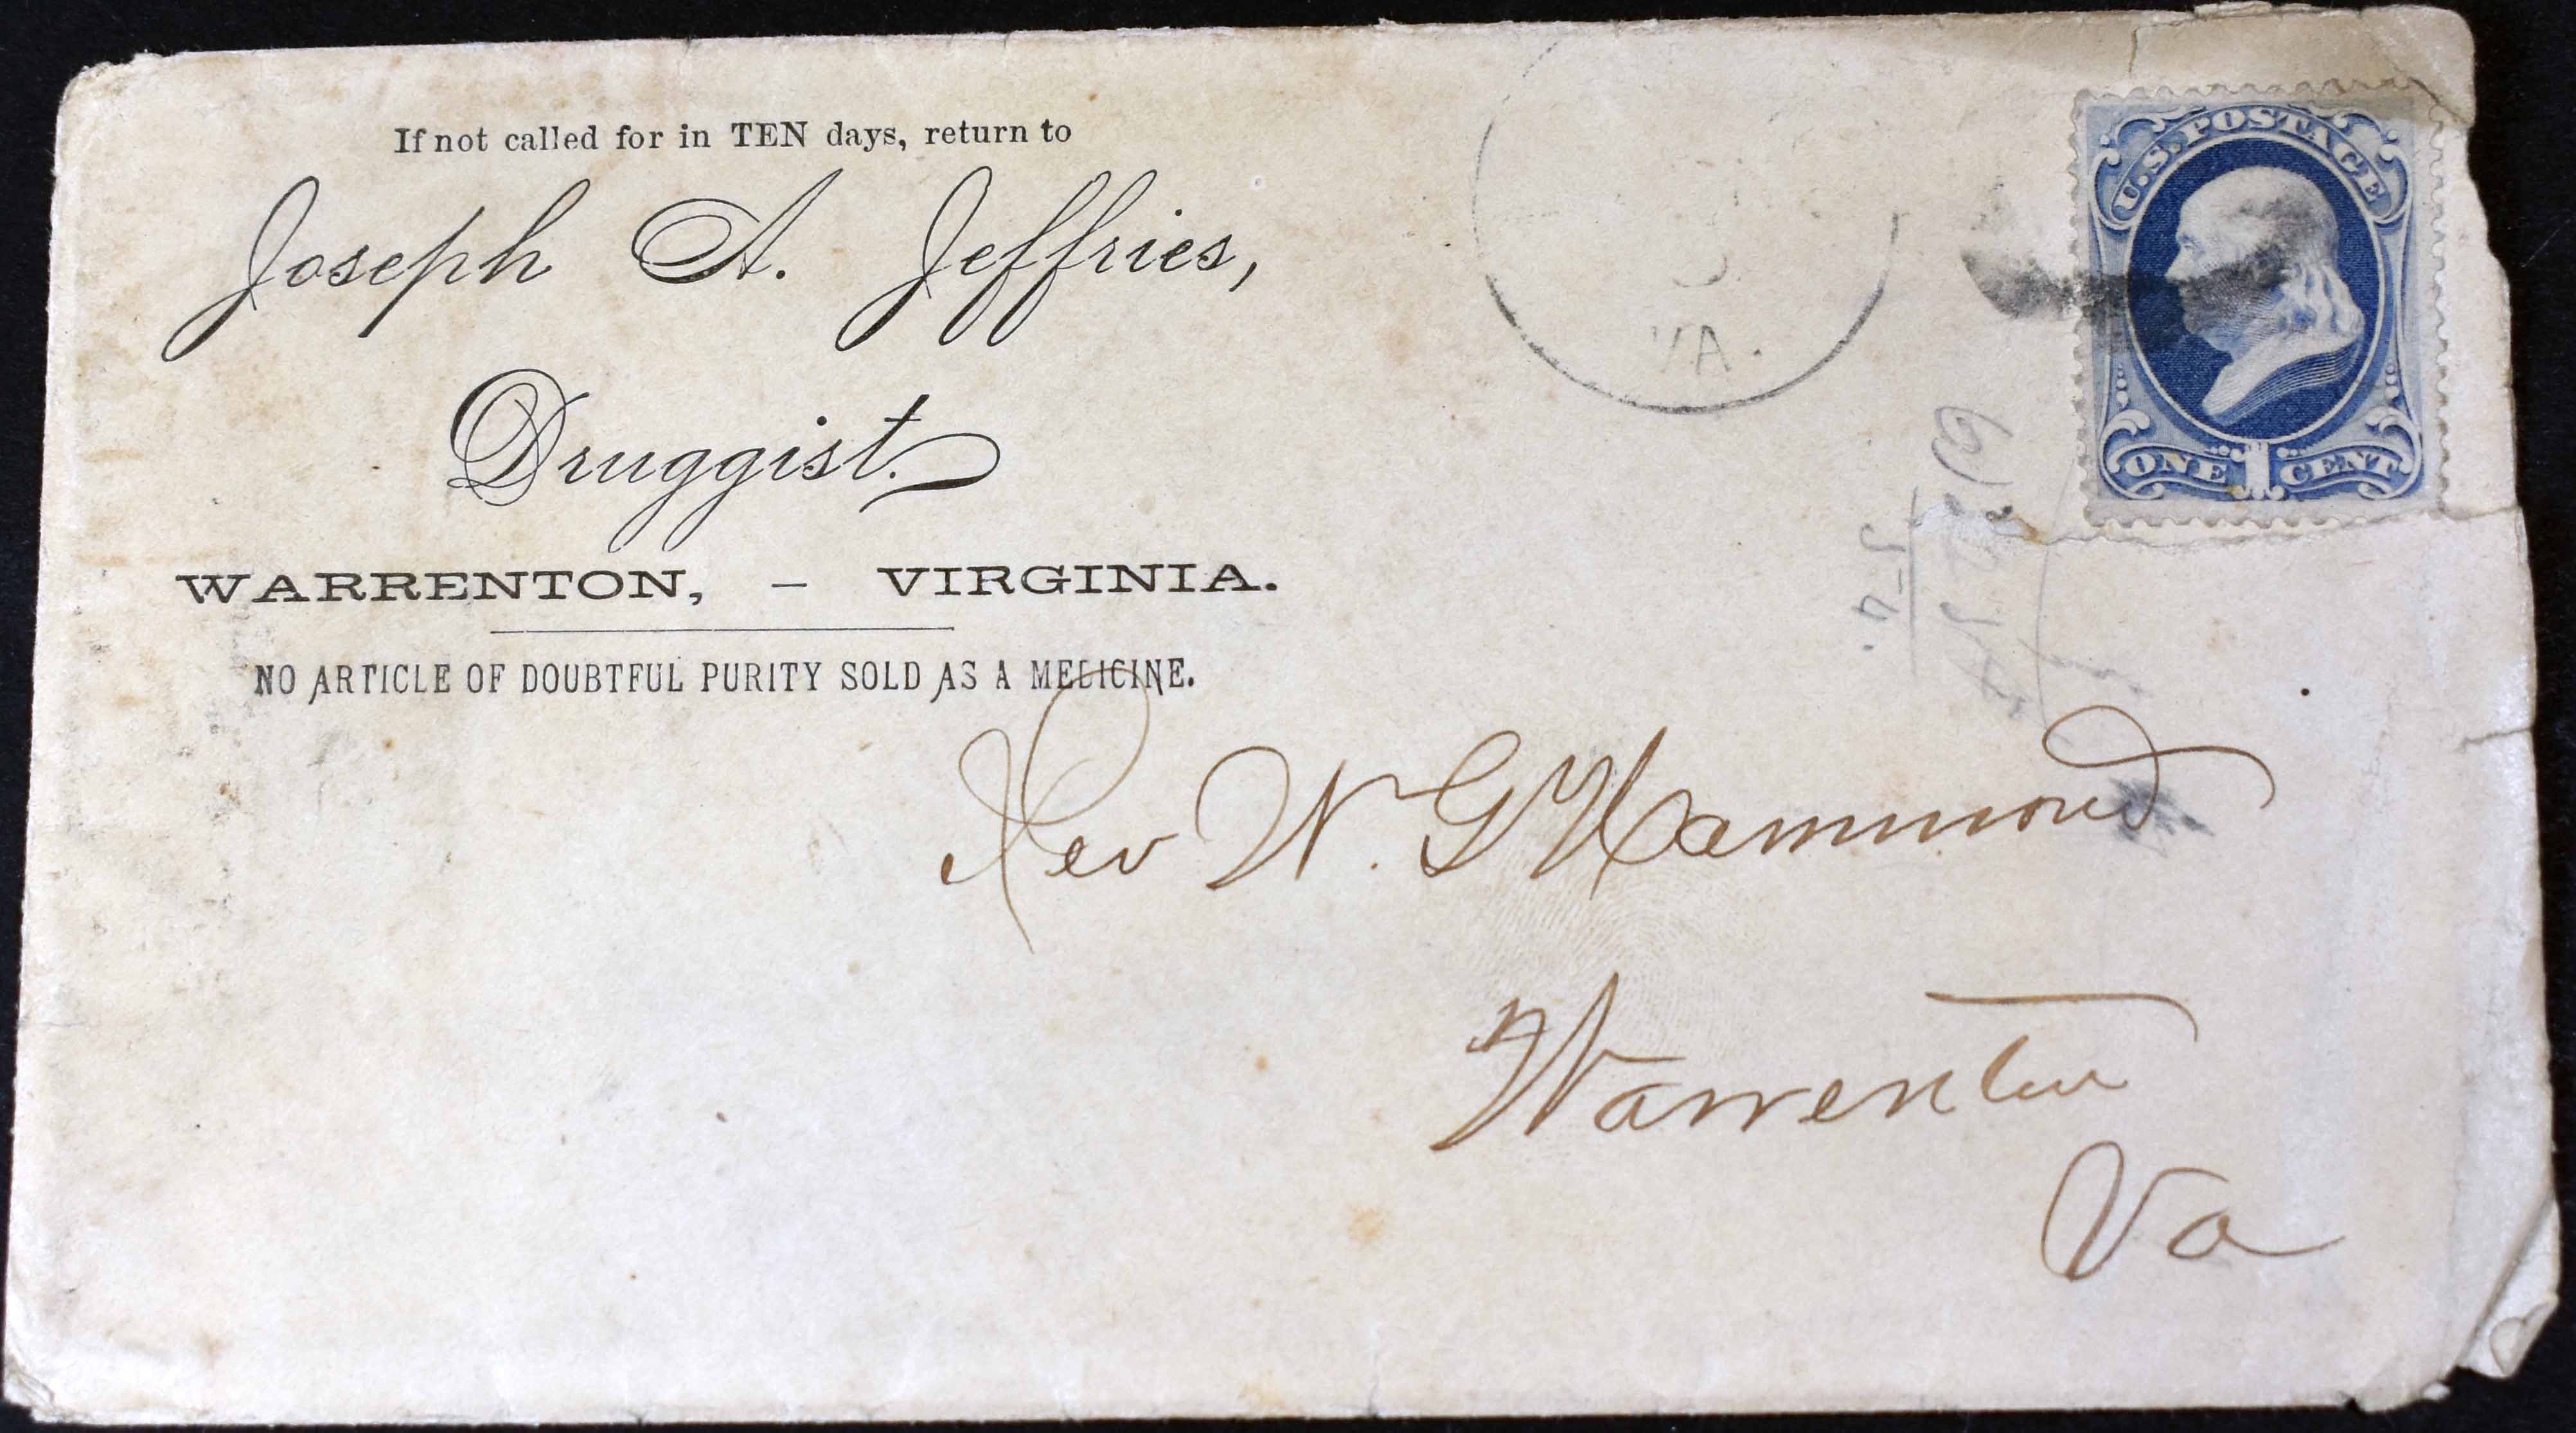 If not called for in TEN days, return to
Joseph A. Jeffries,
Druggist.
WARRENTON, - VIRGINIA.
NO ARTICLE OF DOUBTFUL PURITY SOLD AS A MEDICINE.
VA.
U.S. POSTAGE
ONE 1 CENT
Rev W. G Hammond
Warrenton
Va